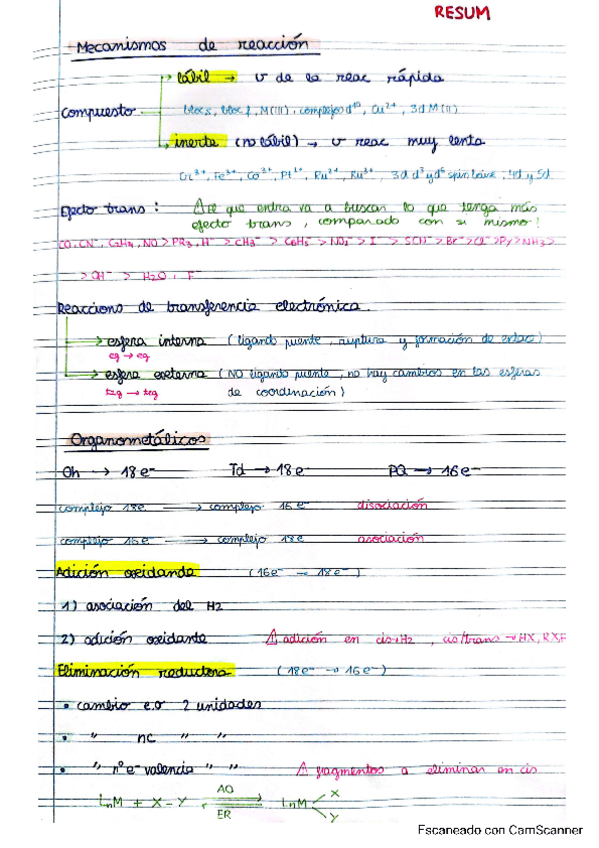 RESUM
Mecanismos de reacción
lábil → v de la reac rápida
Compuesto
bloc s, bloc f, M(III), complejos d¹⁰, Cu²⁺, 3d M(II)
inerte (no lábil) → v reac muy lenta
Cr³⁺, Fe³⁺, Co³⁺, Pt²⁺, Ru²⁺, Ru³⁺, 3d d³ y d⁶ spin baixe, 4d y 5d
Efecto trans: ⚠ el que entra va a buscar lo que tenga más
efecto trans, comparado con si mismo!
CO, CN⁻, C₂H₄, NO > PR₃, H⁻ > CH₃⁻ > C₆H₅⁻ > NO₂⁻ > I⁻ > SCN⁻ > Br⁻ > Cl⁻ > Py > NH₃ >
> OH⁻ > H₂O, F⁻
Reaccions de transferencia electrónica.
→ esfera interna (ligando puente, ruptura y formación de enlac)
eg → eg
→ esfera externa (NO ligando puente, no hay cambios en las esferas
t₂g → t₂g de coordinación)
Organometálicos
Oh → 18e⁻ Td → 18e PQ → 16e⁻
complejo 18e → complejo 16e⁻ disociación
complejo 16e → complejo 18e asociación
Adición oxidande (16e⁻ → 18e⁻)
1) asociación del H2
2) adición oxidante ⚠ adición en cis → H2, cis/trans → HX, RXF
Eliminación reductora (18e⁻ → 16e⁻)
• cambio e.o 2 unidades
• " nc " "
• " nº e⁻ valencia " " ⚠ fragmentos a eliminar en cis
LnM + X-Y AO ER LnM X Y
Escaneado con CamScanner